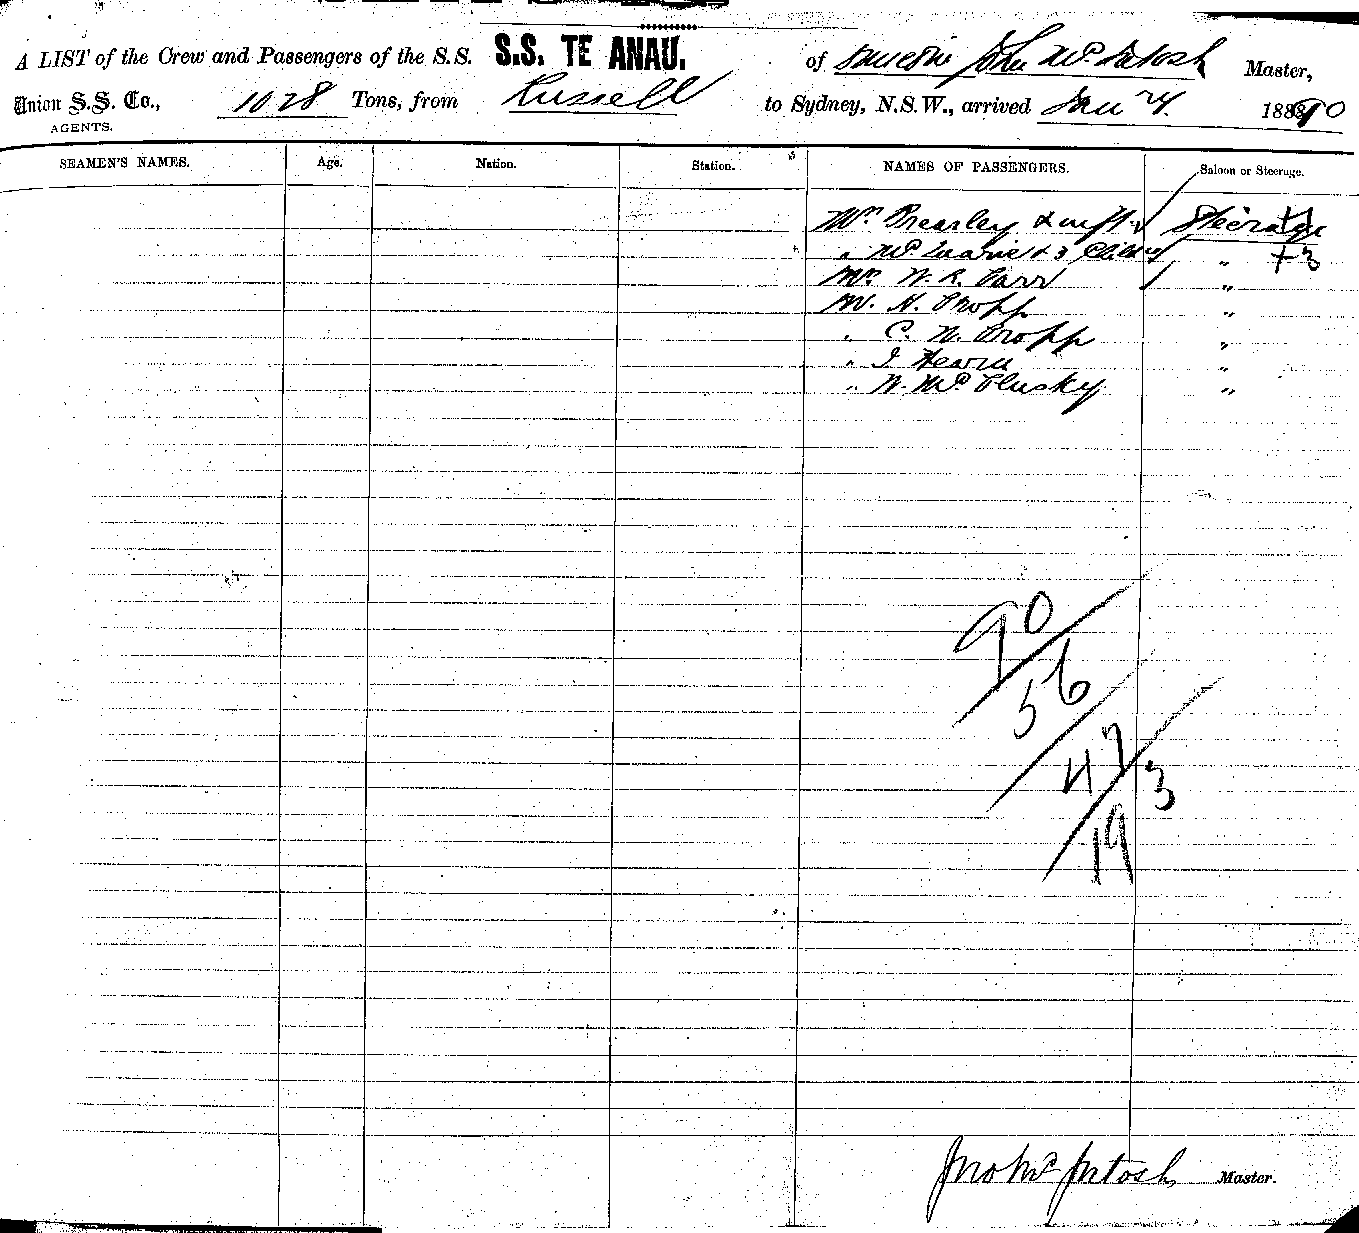 A LIST of the Crew and Passengers of the S.S. S.S. TE ANAU. of Dunedin John McIntosh Master,
Union S.S. Co., 1028 Tons, from Russell to Sydney, N.S.W., arrived Jan 4. 1890
AGENTS.
SEAMEN'S NAMES. Age. Nation. Station. NAMES OF PASSENGERS. Saloon or Steerage.
Mr Brearley & wife Steerage
" Mc & 3 Child " +3
Mr. W. R. Parr "
Mr. H. Propp "
" C. W. Propp "
" J Hearn "
" W. McClusky "
90
56
47 3
19
Jno McIntosh Master.